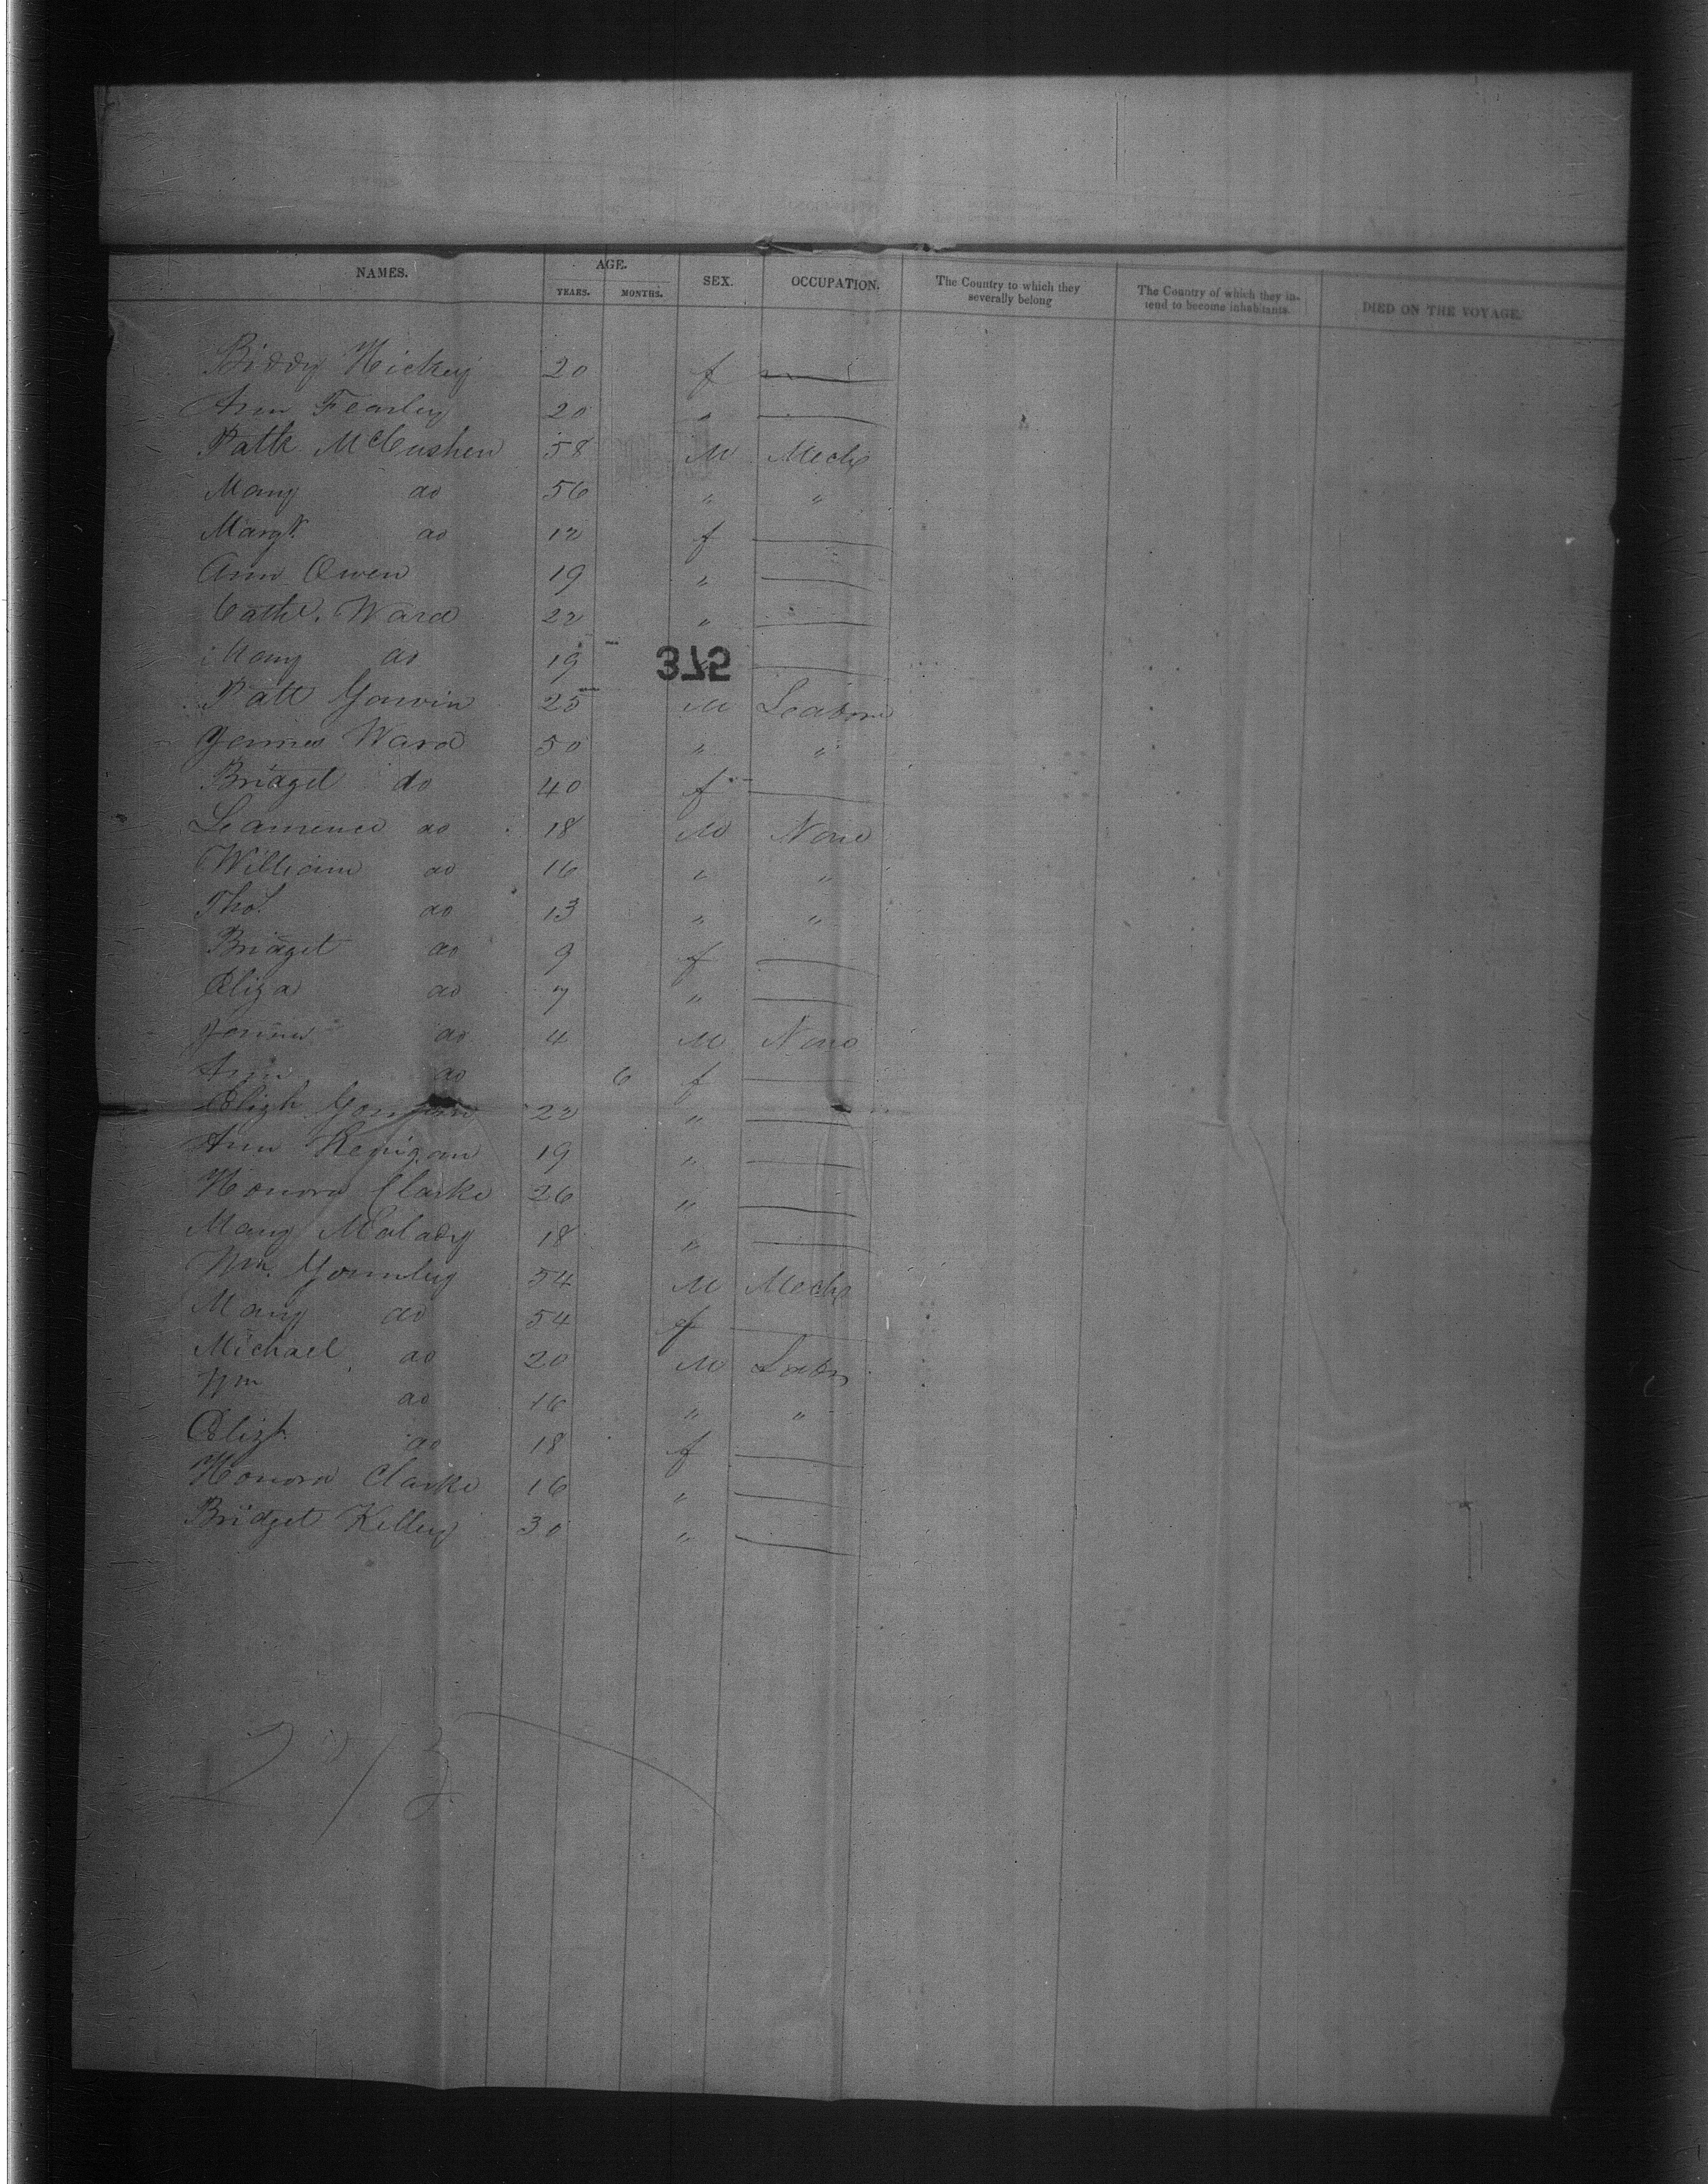 NAMES. AGE. SEX. OCCUPATION. The Country to which they severally belong The Country of which they intend to become inhabitants. DIED ON THE VOYAGE.
YEARS. MONTHS.
Biddy Hickey 20 f
Ann Fearley 20 "
Patk McCushen 58 M Mech
Mary do 56 " "
Margt do 12 f
Ann Owen 19 "
Cathe. Ward 22 "
Mary do 19
375
Patt 25 M Labor
James Ward 50 " "
Bridget do 40 f
Lawrence do 18 M None
William do 16 " "
Thos. do 13 " "
Bridget do 9 f
Eliza do 7 "
James do 4 M None
Ann do 6 f
Elizh 22 "
Ann 19 "
Honora Clarke 26 "
Mary Malady 18 "
Wm. 54 M Mech
Mary do 54 f
Michael do 20 M Labor
Wm do 16 " "
Elizh do 18 f
Honora Clarke 16 "
Bridget Kelley 30 "
273